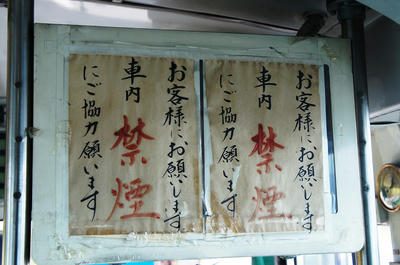 お客様に、お願いします
車内
禁煙
にご協力願います
お客様に、お願いします
車内
禁煙
にご協力願います